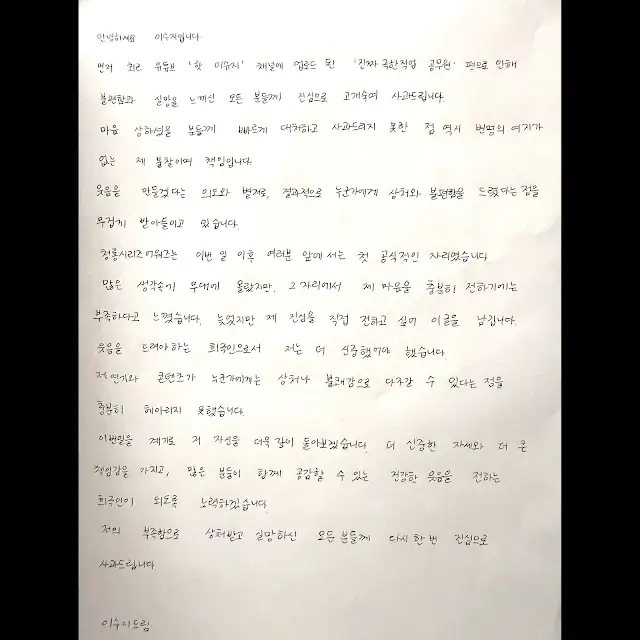 안녕하세요 이수지입니다.
먼저 최근 유튜브 '핫 이슈지' 채널에 업로드 된 '진짜 극한직업 공무원' 편으로 인해
불편함과 실망을 느끼신 모든 분들께 진심으로 고개숙여 사과드립니다.
마음 상하셨을 분들께 빠르게 대처하고 사과드리지 못한 점 역시 변명의 여지가
없는 제 불찰이며 책임입니다.
웃음을 만들겠다는 의도와 별개로, 결과적으로 누군가에게 상처와 불편함을 드렸다는 점을
무겁게 받아들이고 있습니다.
청룡시리즈어워즈는 이번 일 이후 여러분 앞에 서는 첫 공식적인 자리였습니다
많은 생각속에 무대에 올랐지만, 그 자리에서 제 마음을 충분히 전하기에는
부족하다고 느꼈습니다. 늦었지만 제 진심을 직접 전하고 싶어 이글을 남깁니다.
웃음을 드려야하는 희극인으로서 저는 더 신중했어야 했습니다.
제 연기와 콘텐츠가 누군가에게는 상처나 불쾌감으로 다가갈 수 있다는 점을
충분히 헤아리지 못했습니다.
이번일을 계기로 저 자신을 더욱 깊이 돌아보겠습니다. 더 신중한 자세와 더 큰
책임감을 가지고, 많은 분들이 함께 공감할 수 있는 건강한 웃음을 전하는
희극인이 되도록 노력하겠습니다.
저의 부족함으로 상처받고 실망하신 모든 분들께 다시 한 번 진심으로
사과드립니다.
이수지드림